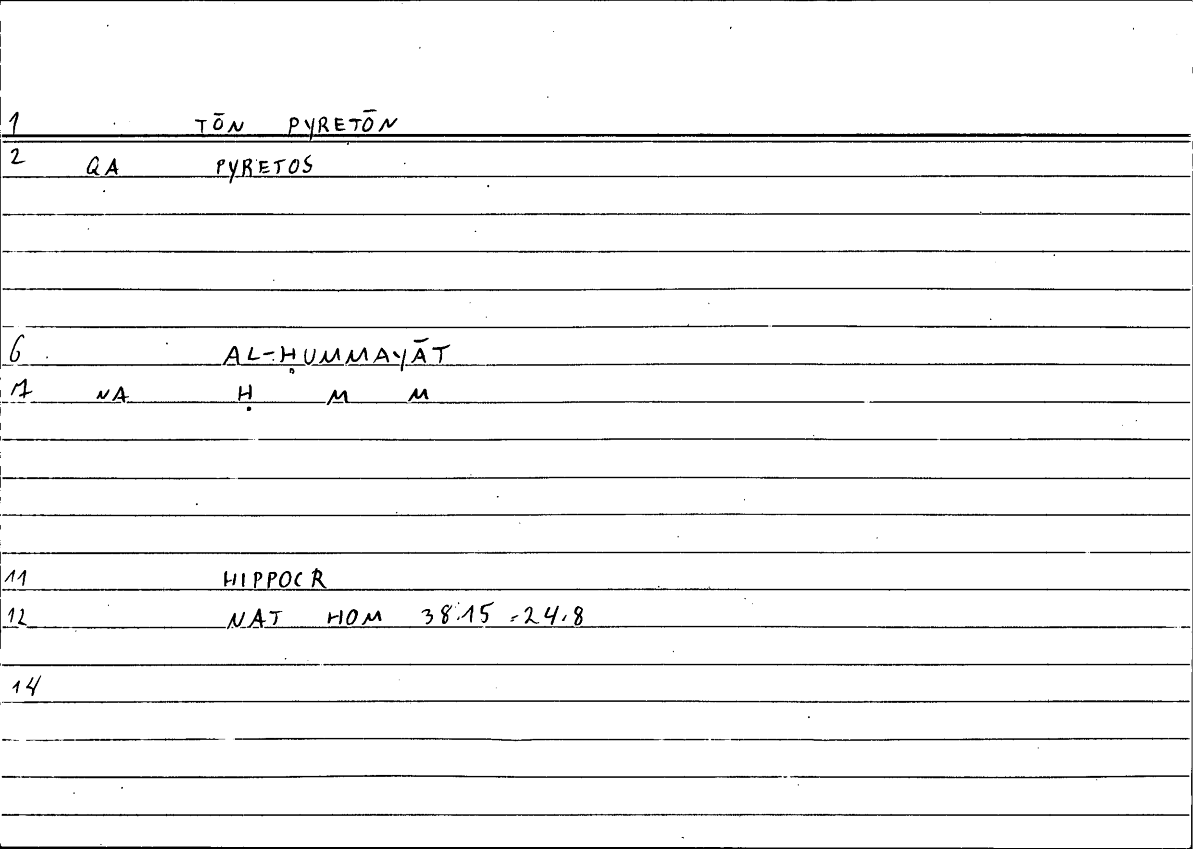 1 TŌN PYRETŌN
2 QA PYRETOS
6 AL-ḤUMMAYĀT
7 NA Ḥ M M
11 HIPPOCR
12 NAT HOM 38.15 = 24.8
14